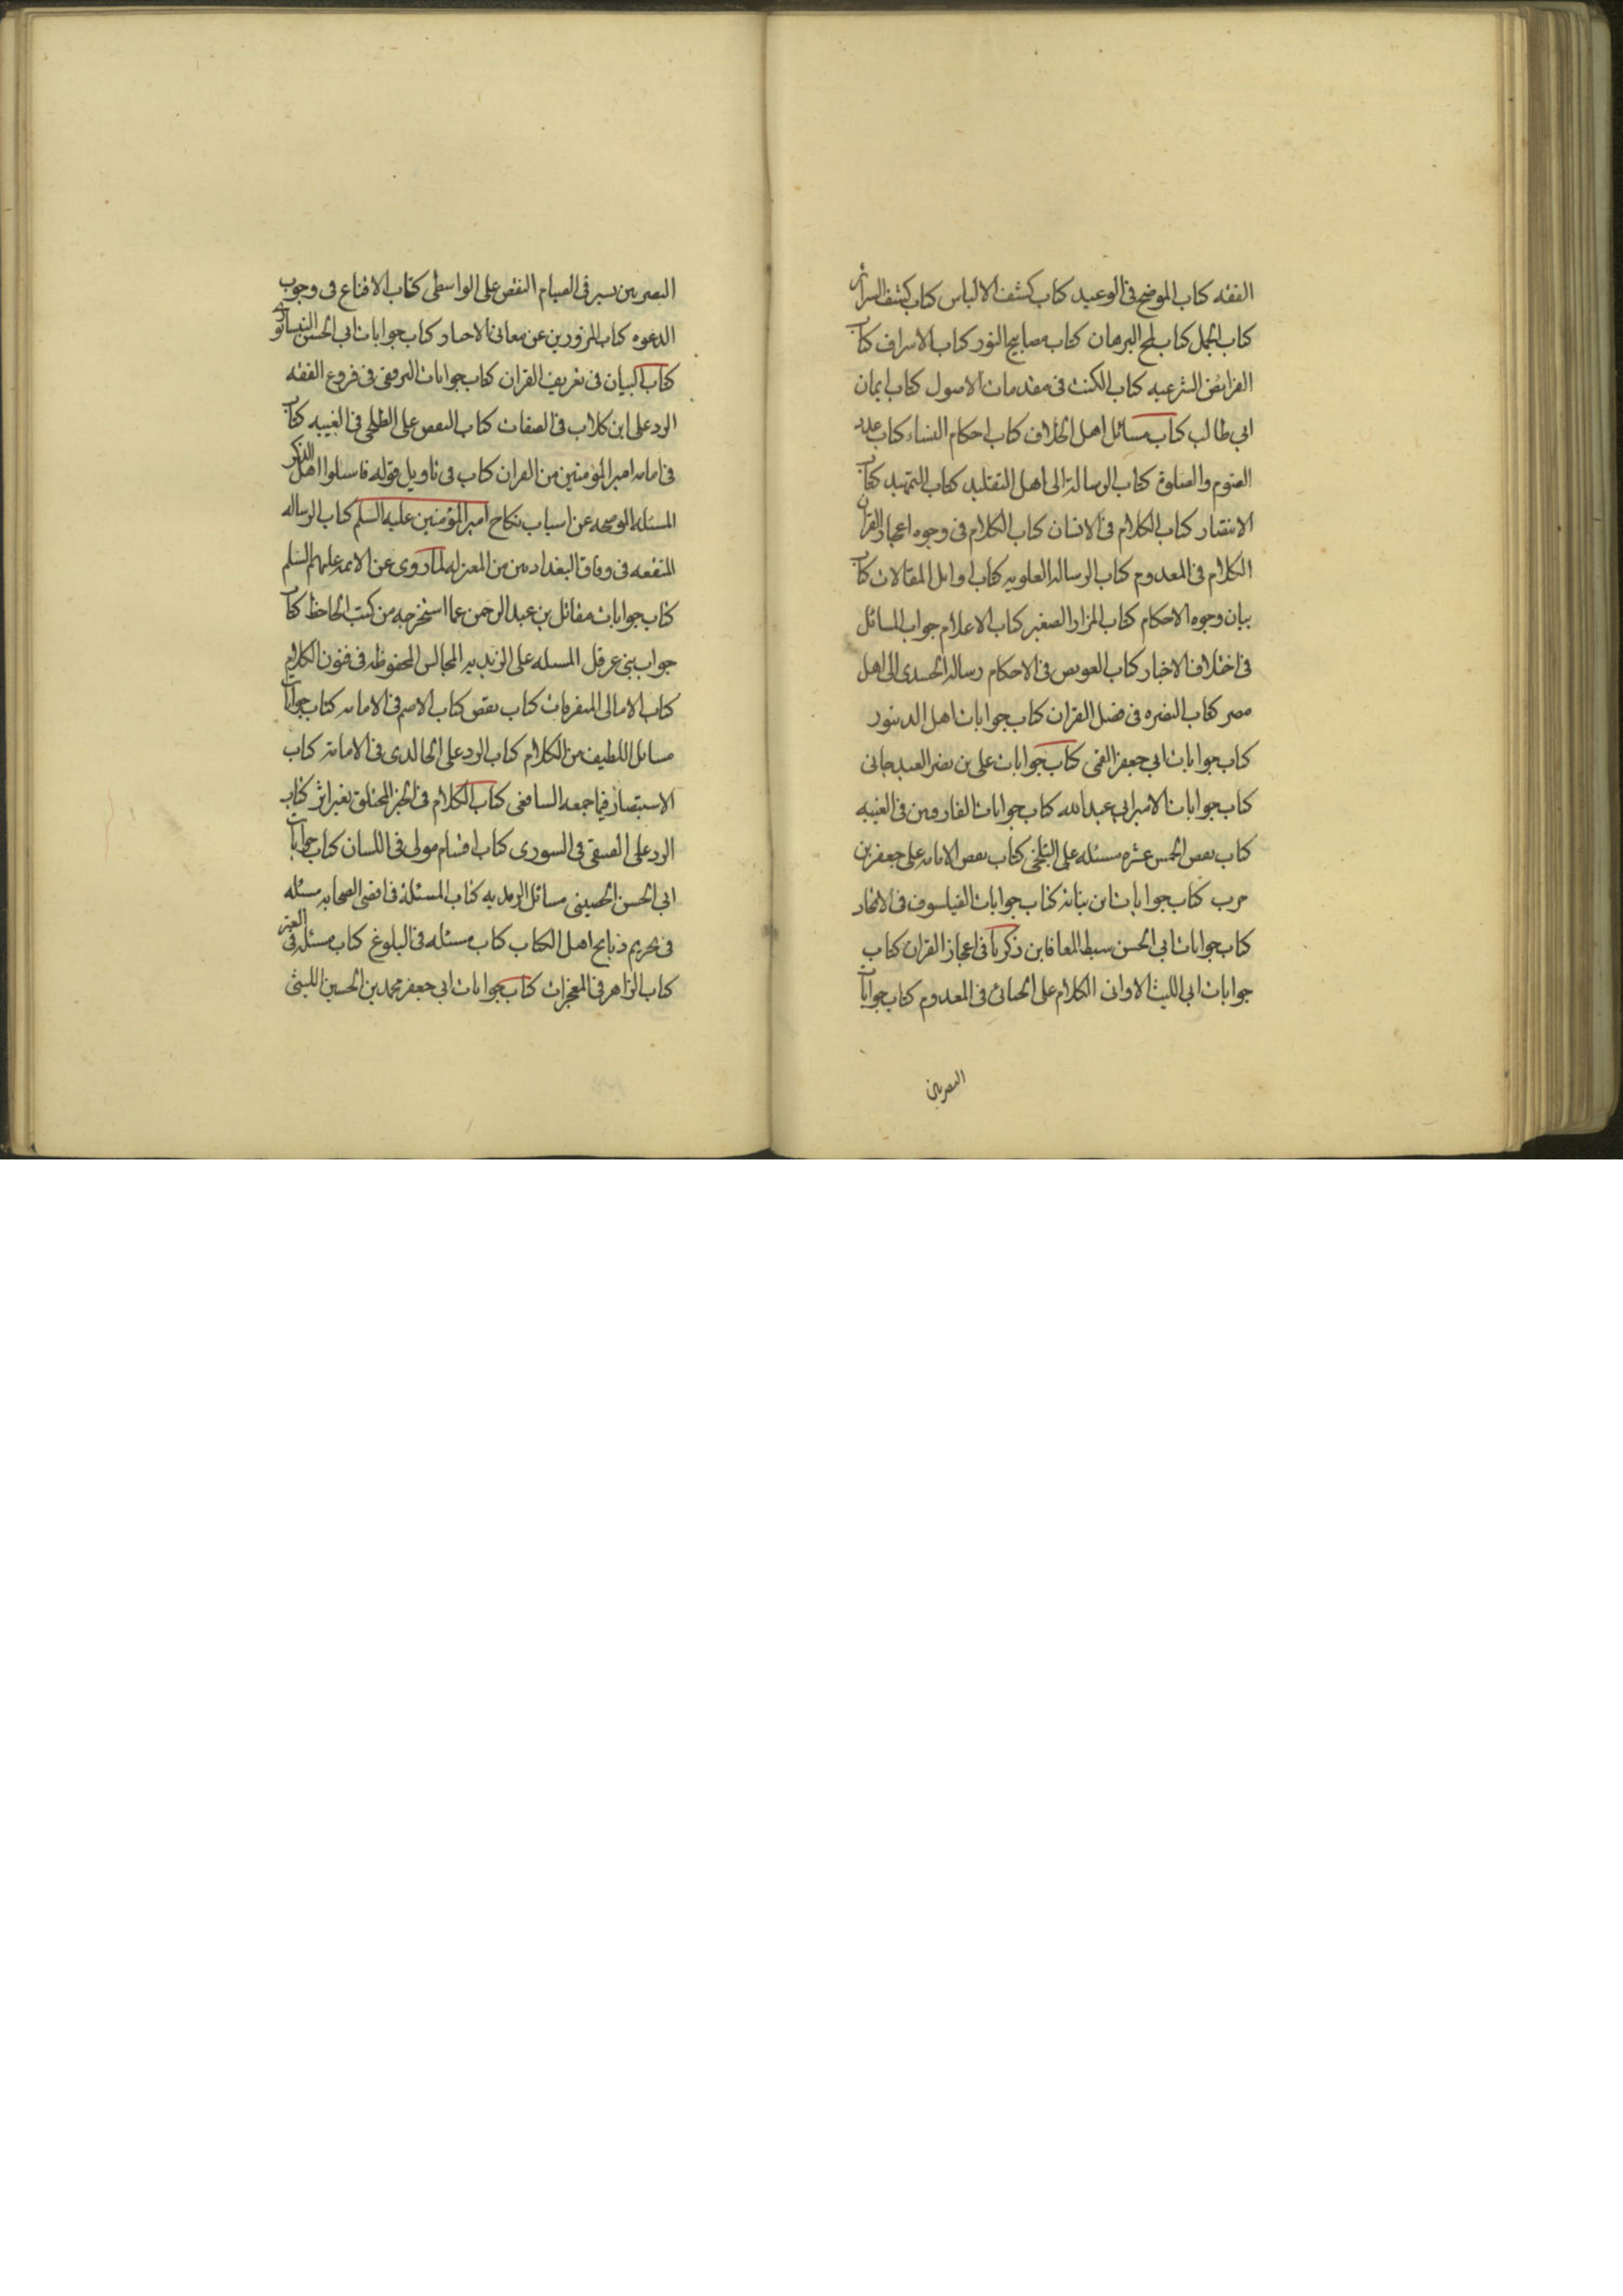 الفقه كتاب الموضح فى الوعيد كتاب كشف الالباس كتاب كشف السرائر
كتاب الجمل كتاب لمح البرهان كتاب مصابيح النور كتاب الاشراف كتاب
الفرايض الشرعيه كتاب النكت فى مقدمات الاصول كتاب ايمان
ابي طالب كتاب مسائل اهل الخلاف كتاب احكام النساء كتاب عدد
الصوم والصلوة كتاب الرسالة الى اهل التقليد كتاب التمهيد كتاب
الانتصار كتاب الكلام فى الانسان كتاب الكلام فى وجوه اعجاز القران
الكلام فى المعدوم كتاب الرساله العلويه كتاب اوايل المقالات كتاب
بيان وجوه الاحكام كتاب المزار الصغير كتاب الاعلام جواب المسائل
فى اختلاف الاخبار كتاب العويص فى الاحكام رساله الجندى الى اهل
مصر كتاب النصره فى فضل القران كتاب جوابات اهل الدينور
كتاب جوابات ابي جعفر القمى كتاب جوابات على بن نصر العبدجانى
كتاب جوابات الامير ابي عبد الله كتاب جوابات الفارقين فى الغيبه
كتاب نقض الخمس عشره مسئله على البلخى كتاب نقض الامامه على جعفر بن
حرب كتاب جوابات ابن نباته كتاب جوابات الفيلسوف فى الاتحاد
كتاب جوابات ابي الحسن سبط المعافا بن زكريا فى اعجاز القران كتاب
جوابات ابي الليث الاوانى الكلام على الجبائى فى المعدوم كتاب جوابات
النصربين
النصربين سير فى الصيام النقض على الواسطى كتاب الاقناع فى وجوب
الدعوه كتاب المزورين عن معانى الاخبار كتاب جوابات ابي الحسن النيسابورى
كتاب البيان فى تعريف القران كتاب جوابات البرقعى فى فروع الفقه
الرد على ابن كلاب فى الصفات كتاب النقض على الطلحى فى الغيبه كتاب
فى امامه امير المؤمنين من القران كتاب فى تاويل قوله فاسئلوا اهل الذكر
المسئله الموضحه عن اسباب نكاح امير المؤمنين عليه السلم كتاب الرساله
المنقعه فى وفاق البغداديين من المعتزله لما روى عن الائمه عليهم السلم
كتاب جوابات مقاتل بن عبد الرحمن عما استخرجه من كتب الجاحظ كتاب
جواب بنى عرقل المسله على الزيديه المجالس المحفوظه فى فنون الكلام
كتاب الامالى المتفرقات كتاب نقض كتاب الاصم فى الامامه كتاب جوابات
مسائل اللطيف من الكلام كتاب الرد على الخالدى فى الامامة كتاب
الاستبصار فيما جمعه الشافعى كتاب الكلام فى الخبر المختلق بغير اثر كتاب
الرد على العتيقى فى الشورى كتاب اقسام مولى فى اللسان كتاب جوابات
ابي الحسن الحصينى مسائل الزيديه كتاب المسئلة فى اقضى الصحابه مسئله
فى تحريم ذبايح اهل الكتاب كتاب مسئله فى البلوغ كتاب مسئله فى العتره
كتاب الزاهر فى المعجزات كتاب جوابات ابي جعفر محمد بن الحسين الليثى